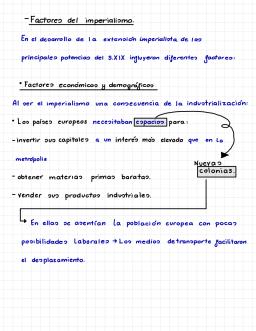 - Factores del imperialismo.
En el desarrollo de la extensión imperialista de las
principales potencias del S.XIX influyeron diferentes factores:
* Factores económicos y demográficos
Al ser el imperialismo una consecuencia de la industrialización:
* Los países europeos necesitaban espacios para:
- invertir sus capitales a un interés más elevado que en la
metrópolis
Nuevas
colonias.
- obtener materias primas baratas.
- vender sus productos industriales.
→ En ellas se asentían la población europea con pocas
posibilidades laborales → Los medios de transporte facilitaron
el desplazamiento.